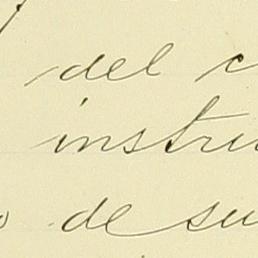 del c
instru
o de su